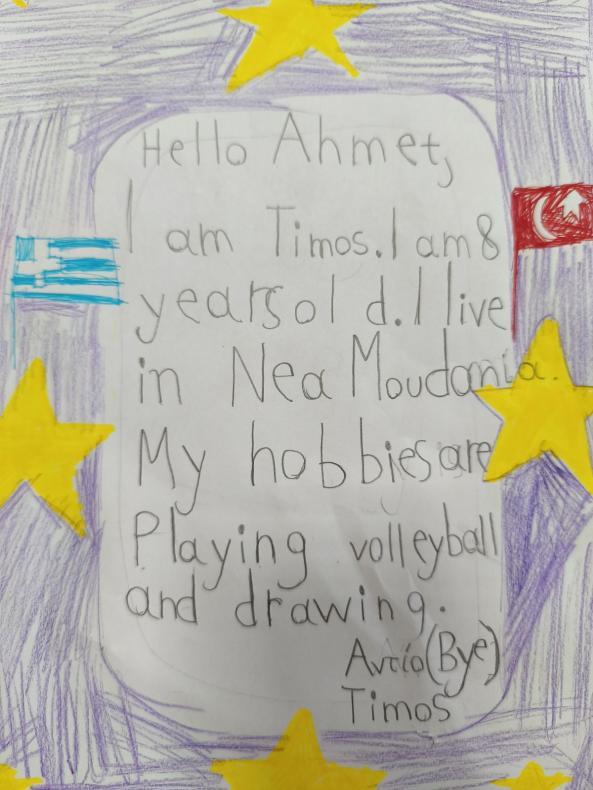 Hello Ahmet,
I am Timos. I am 8
years old. I live
in Nea Moudania.
My hobbies are
Playing volleyball
and drawing.
Αντίο (Bye)
Timos